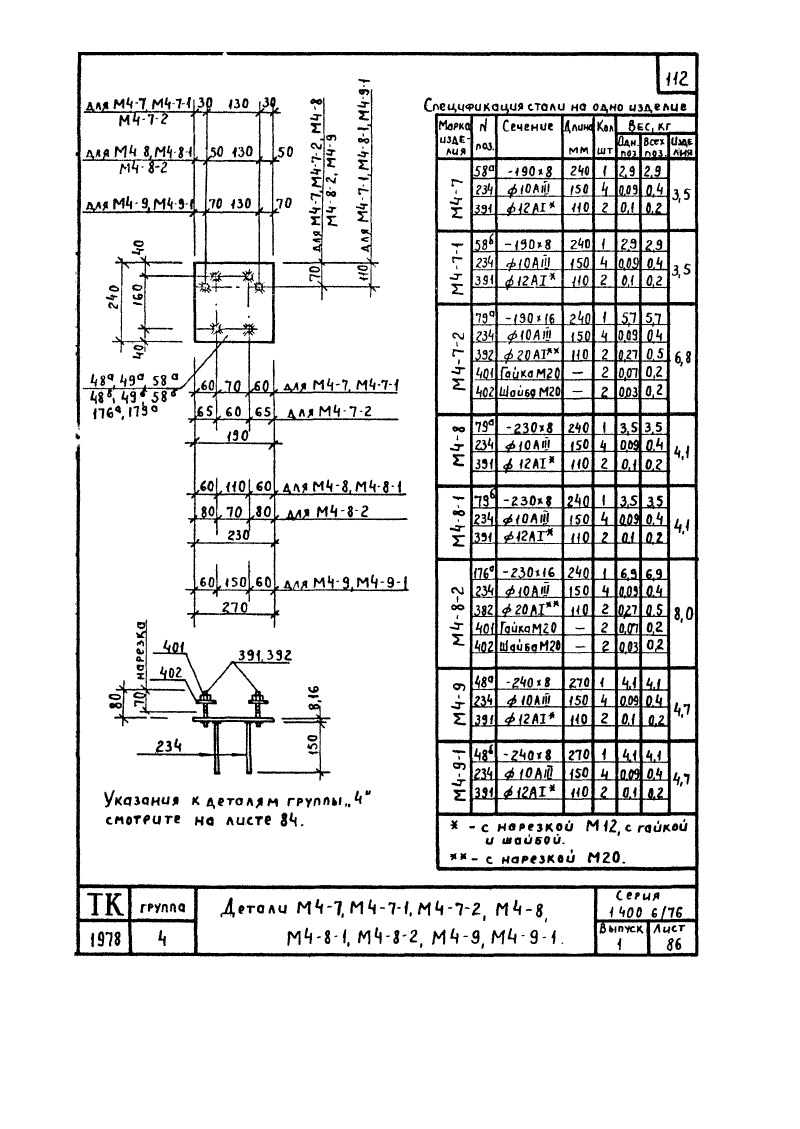 112
для М4-7, М4-7-1 30 130 30
М4-7-2
для М4-8, М4-8-1 50 130 50
М4-8-2
для М4-9, М4-9-1 70 130 70
для М4-7, М4-7-2, М4-8
М4-8-2, М4-9
для М4-7-1, М4-8-1, М4-9-1
40
240 160
40
70
110
48а, 49а, 58а
48б, 49б, 58б
176а, 179а
60 70 60 для М4-7, М4-7-1
65 60 65 для М4-7-2
190
60 110 60 для М4-8, М4-8-1
80 70 80 для М4-8-2
230
60 150 60 для М4-9, М4-9-1
270
401
402
нарезка
391,392
80
70
8,16
150
234
Указания к деталям группы „4"
смотрите на листе 84.
Спецификация стали на одно изделие
Марка изделия N поз. Сечение Длина мм Кол шт Вес, кг
Одн. поз. Всех поз. Изделия
М4-7 58а -190×8 240 1 2,9 2,9 3,5
234 ф10АIII 150 4 0,09 0,4
391 ф12АI* 110 2 0,1 0,2
М4-7-1 58б -190×8 240 1 2,9 2,9 3,5
234 ф10АIII 150 4 0,09 0,4
391 ф12АI* 110 2 0,1 0,2
М4-7-2 79а -190×16 240 1 5,7 5,7 6,8
234 ф10АIII 150 4 0,09 0,4
392 ф20АI** 110 2 0,27 0,5
401 Гайка М20 — 2 0,07 0,2
402 Шайба М20 — 2 0,03 0,2
М4-8 79а -230×8 240 1 3,5 3,5 4,1
234 ф10АIII 150 4 0,09 0,4
391 ф12АI* 110 2 0,1 0,2
М4-8-1 79б -230×8 240 1 3,5 3,5 4,1
234 ф10АIII 150 4 0,09 0,4
391 ф12АI* 110 2 0.1 0,2
М4-8-2 176а -230×16 240 1 6,9 6,9 8,0
234 ф10АIII 150 4 0,09 0,4
382 ф20АI** 110 2 0,27 0,5
401 Гайка М20 — 2 0,07 0,2
402 Шайба М20 — 2 0,03 0,2
М4-9 48а -240×8 270 1 4,1 4,1 4,7
234 ф10АIII 150 4 0,09 0,4
391 ф12АI* 110 2 0,1 0,2
М4-9-1 48б -240×8 270 1 4,1 4,1 4,7
234 ф10АIII 150 4 0,09 0,4
391 ф12АI* 110 2 0,1 0,2
* - с нарезкой М12, с гайкой
и шайбой.
** - с нарезкой М20.
ТК группа
1978 4
Детали М4-7, М4-7-1, М4-7-2, М4-8,
М4-8-1, М4-8-2, М4-9, М4-9-1.
Серия
1 400 6/76
Выпуск Лист
1 86